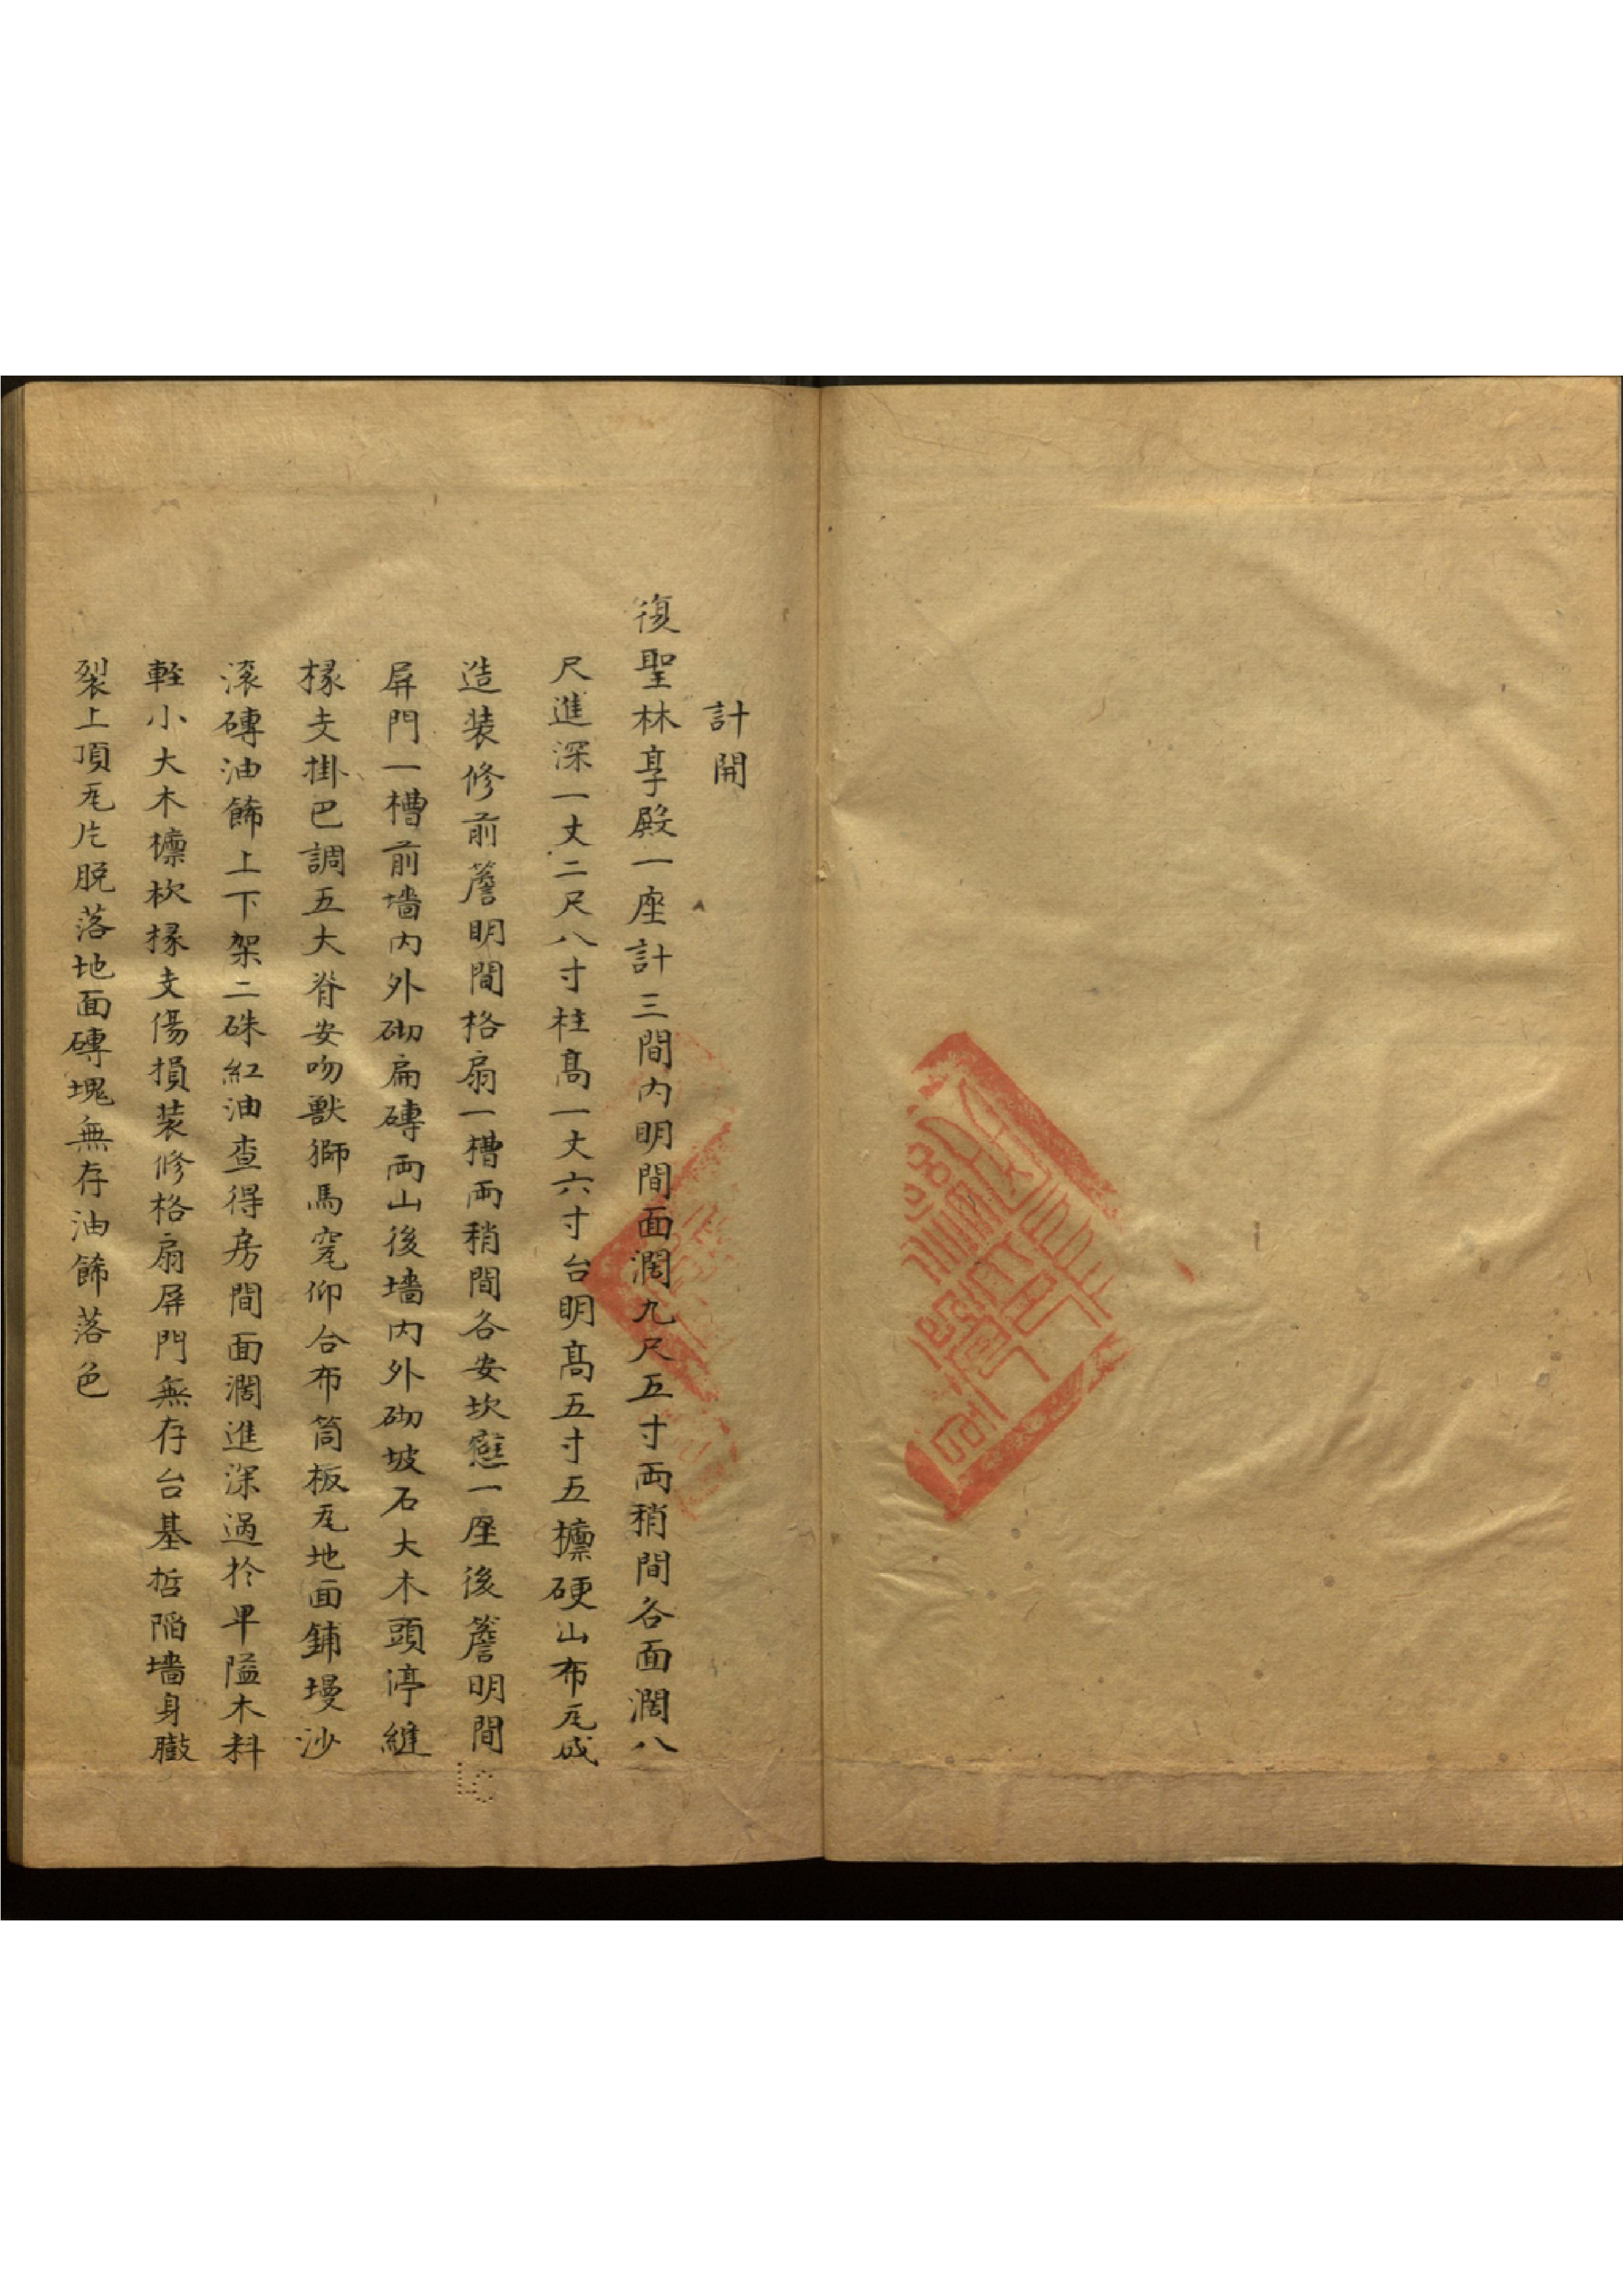 計開
復聖林享殿一座計三間内明間面濶九尺五寸両稍間各面濶八
尺進深一丈二尺八寸柱髙一丈六寸台明髙五寸五檩硬山布瓦成
造装修前簷明間格扇一槽両稍間各安坎窓一座後簷明間
屏門一槽前墻内外砌扁磚両山後墻内外砌坡石大木頭停縫
椽支掛巴調五大脊安吻獸獅馬窀仰合布筒板瓦地面鋪墁沙
滚磚油飾上下架二硃紅油查得房間面濶進深過扵卑隘木料
軽小大木檩枚椽支傷損装修格扇屏門無存台基哲陷墻身臌
裂上頂瓦片脱落地面磚塊無存油飾落色